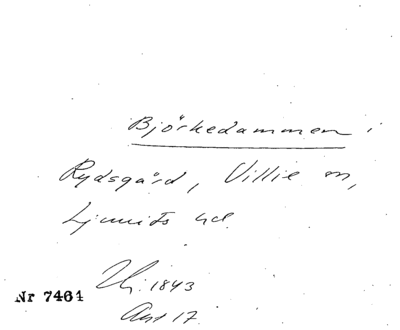 Björkedammen i
Rydsgård, Villie sn,
Ljunits hd.
1843
Nr 7461
Ant 17